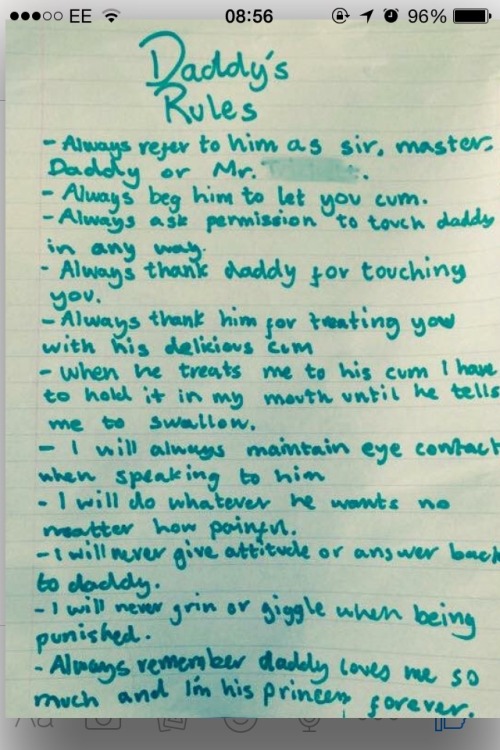 EE 08:56 96%
Daddy's
Rules
- Always refer to him as sir, master,
Daddy or Mr.
- Always beg him to let you cum.
- Always ask permission to touch daddy
in any way.
- Always thank daddy for touching
you.
- Always thank him for treating you
with his delicious cum
- When he treats me to his cum I have
to hold it in my mouth until he tells
me to swallow.
- I will always maintain eye contact
when speaking to him
- I will do whatever he wants no
matter how painful.
- I will never give attitude or answer back
to daddy.
- I will never grin or giggle when being
punished.
- Always remember daddy loves me so
much and I'm his princess forever.
Aa